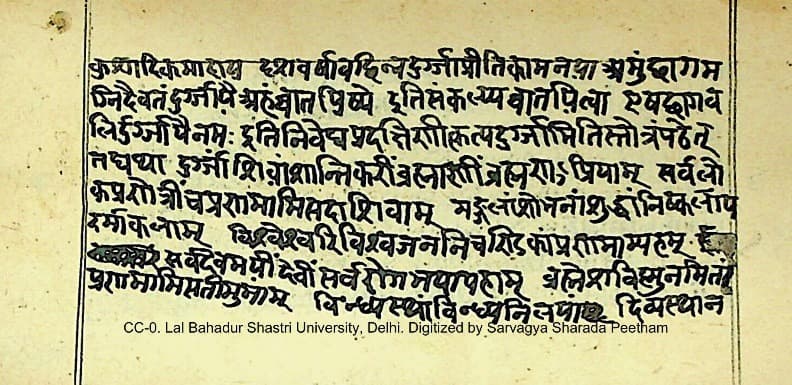 दशवर्षावच्छिन्नदुर्ग्गाप्रीतिकामनया अमुं छागम
ग्निदैवतं दुर्ग्गायै अहं घातयिष्ये इति संकल्प्य घातयित्वा एषछागव
लिर्दुर्ग्गायै नमः इति निवेद्य प्रदक्षिणीकृत्य दुर्ग्गामिति स्तोत्रं पठेत्
तद्यथा दुर्ग्गां शिवां शान्तिकरीं ब्रह्माणीं ब्रह्मणः प्रियाम् सर्वलो
कप्रणेत्रीं च प्रणमामि सदाशिवाम् मङ्गलां शोभनां शुद्धां निष्कलां प
रमां कलाम् विश्वेश्वरि विश्वजननि चण्डिकां प्रणमाम्यहम्
सर्वदेवमयीं देवीं सर्वरोगभयापहाम् ब्रह्मेशविष्णुनमितां
प्रणमामि सतीमुमाम् विन्ध्यस्थां विन्ध्यनिलयां दिव्यस्थान
CC-0. Lal Bahadur Shastri University, Delhi. Digitized by Sarvagya Sharada Peetham